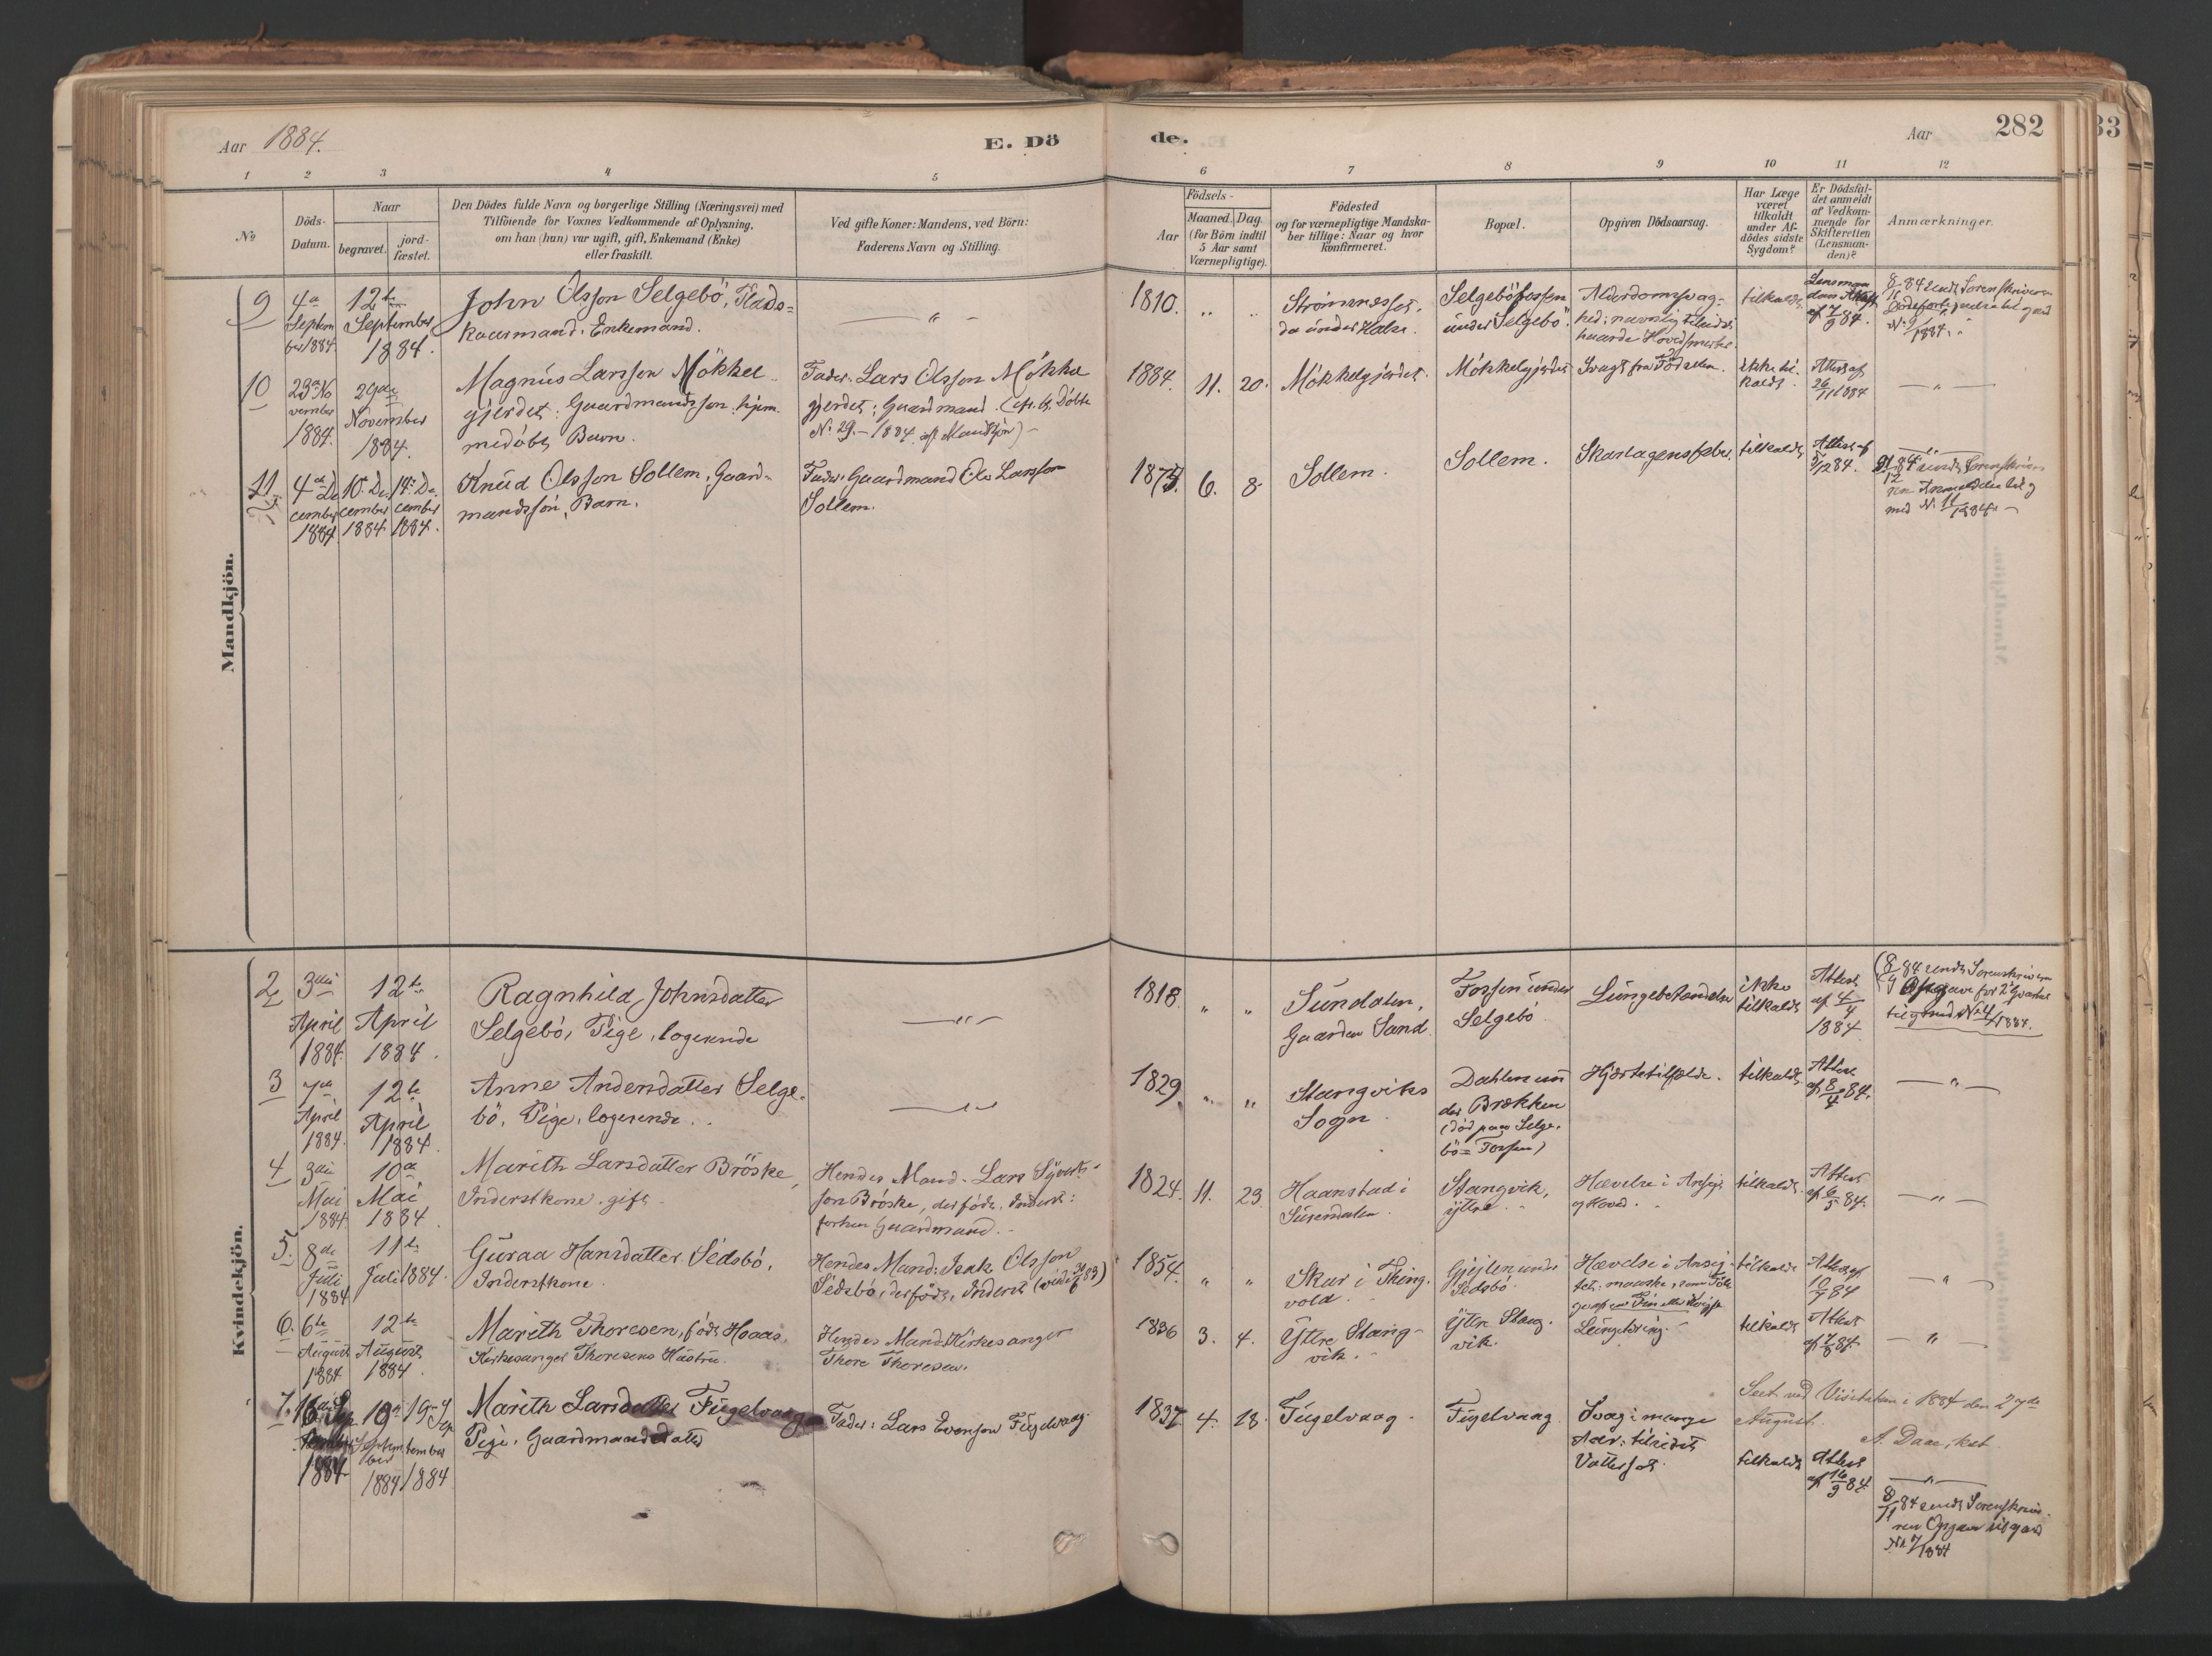 Aar 1884.
E. Dö
de.
Aar
282
33
1 2 3 4 5 6 7 8 9 10 11 12
No
Döds-
Datum.
Naar
begravet.
jord-
fæstet.
Den Dödes fulde Navn og borgerlige Stilling (Næringsvei) med
Tilföiende for Voxnes Vedkommende af Oplysning,
om han (hun) var ugift, gift, Enkemand (Enke)
eller fraskilt.
Ved gifte Koner: Mandens, ved Börn:
Faderens Navn og Stilling.
Födsels-
Aar
Maaned.
Dag.
(for Börn indtil
5 Aar samt
Værnepligtige).
Födested
og for værnepligtige Mandska-
ber tillige: Naar og hvor
konfirmeret.
Bopæl.
Opgiven Dödsaarsag.
Har Læge
været
tilkaldt
under Af-
dödes sidste
Sygdom?
Er Dödsfal-
det anmeldt
af Vedkom-
mende for
Skifteretten
(Lensman-
den)?
Anmærkninger.
Mandkjön.
9
4de
Septem
ber 1884.
12te
September
1884.
John Olsson Selgebö, Plads-
kaarmand. Enkemand.
— " —
1810.
" "
Strømnesset,
da under Halse.
Selgeböfossen
under Selgebö.
Alderdomssvag-
hed; navnlig tilsidst
haarde Hovedsmerter.
tilkaldt
Lensman
dens Attest
af 7/9 84.
8/11 84 sendt Sorenskriveren
N. 9/1884.
10
23de No
vember
1884.
29de
November
1884.
Magnus Larsson Mökkel-
gjerdet; Gaardmandssön; hjem-
medöbt Barn.
Fader: Lars Olsson Mökkel
gjerdet; Gaardmand. (cfr. D. Döbte
N. 29 – 1884. af Mandkjön) –
1884.
11.
20.
Mökkelgjerdet.
Mökkelgjerdet
Svagt fra Födselen.
ikke til-
kaldt.
Attest af
26/11 1884
— " —
11
4de De
cember
1884
10de De
cember
1884
14de De
cember
1884.
Knud Olsson Sollem, Gaard-
mandssön, Barn.
Fader: Gaardmand Ole Larsson
Sollem.
1875.
6.
8
Sollem.
Sollem.
Skarlagensfeber.
tilkaldt
Attest af
5/12 84.
— " —
med N. 11/1884. –
Kvindekjön.
2
3die
April
1884.
12te
April
1884.
Ragnhild Johnsdatter
Selgebö, Pige, logerende
— " —
1818.
" "
Sundalen,
Gaarden Sand.
Fossen under
Selgebö.
Lungebetændelse
ikke
tilkaldt
Attest
af 4/4
1884.
(8/9 84 sendt Sorenskriveren
Opgave for 2det Qvartal
tilgmed N. 2/1884.
3
7de
April
1884.
12te
April
1884.
Anne Andersdatter Selge-
bö, Pige, logerende.
— " —
1829.
" "
Stangviks
Sogn.
Dahlen un
der Brækken
(död paa Selge-
bö=Fossen)
Hjertetilfælde.
tilkaldt
Attest
af 8/4 84.
— " —
4
3die
Mai
1884
10de
Mai
1884.
Marith Larsdatter Bröske,
Inderstkone, gift.
Hendes Mand: Lars Sjvert-
son Bröske, der födt, Inderst:
forhen Gaardmand.
1824.
11.
23.
Haanstad i
Surendalen.
Stangvik,
ytre.
Hævelse i Ansigt
og Hoved.
tilkaldt.
Attest
af 6/5 84.
— " —
5.
8de
Juli
1884
11te
Juli 1884.
Guraa Hansdatter Sedsbö,
Inderstkone.
Hendes Mand: Isak Olsson
Sedsbö, der födt, Inderst
1854.
" "
Skar i Thing-
vold.
Gjejlen under
Sedsbö.
Hævelse i Ansig-
tet; maaske, som Föl-
tilkaldt
Attest af
10/7 84
— " —
6.
6te
August
1884
12te
August
1884.
Marith Thoresen, födt Haas,
Kirkesanger Thoresens Hustru.
Hendes Mand: Kirkesanger
Thore Thoresen.
1836
3.
4.
Yttre Stang-
vik.
Yttre Stang-
vik.
Lungetæring.
tilkaldt
Attest
af 7/8 84
— " —
Seet ved Visitatsen i 1884 den 27de
August.
A. Daae, kst
7.
16de Sep
tember
1884
19de
Septem
ber
1884
19de Sep
tember
1884
Marith Larsdatter Fugelvaag
Pige, Gaardmandsdatter
Fader: Lars Evensen Fugelvaag.
1837
4.
18.
Fugelvaag.
Fugelvaag
Svag i mange
Aar; tilsidst
Vattersot.
tilkaldt
Attest
af 16/9 84
— " —
8/11 84 sendt Sorenskrive-
ren Opgave tilgmed
N. 7/1884